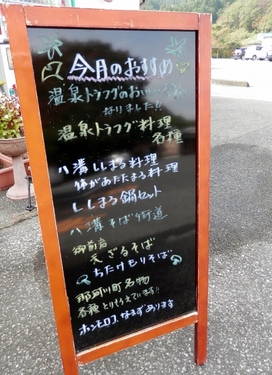 今月のおすすめ
温泉トラフグのおいしい
なりました!!
温泉トラフグ料理
各種
八溝ししまる料理
体があたたまる料理
ししまる鍋セット
八溝そば街道
御前岩
天ざるそば
ちたけもりそば
那珂川町名物
各種とりそろえています!!
ホンモロコ なまず あります